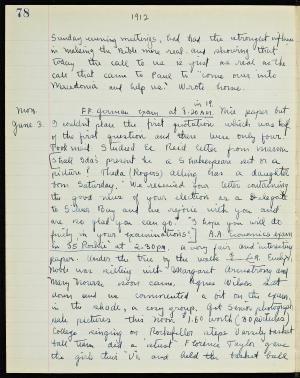 78
1912
Sunday evening meetings, had had the strongest influence
in making the Bible more real and showing that
today the call to us is just as real as the
call that came to Paul to "come over into
Macedonia and help us." Wrote home.
Mon. in 19.
June 3. FF. German exam at 8.20 A.M. Nice paper but
I couldn't place the first quotation which was half
of the first question and there were only four.
Studied Ec. Read letter from Marion
Shall Ida's present be a Shakespeare set or a
picture? Thada (Rogers) Alling has a daughter
born Saturday. "We received your letter containing
the good news of your election as a delegate
to Silver Bay and we rejoice with you and
are so glad you can go" "I hope you will do
finely in your examinations". AA. Economics exam
in 35 Rockie at 2.30 P.M. A very fair and interesting
paper. Under the tree by the walk
Noble was sitting with Margaret Armstrong and
Mary soon came. Agnes Wilson sat
down and we commented a bit on the exam,
in the shade, a cosy group. Got Senior
pictures this noon $1.60 worth (80 pictures)
College singing on Rockefeller steps. Varsity basket
ball team did a "stunt" Florence Taylor gave
the girls their "V"s and held the basket ball